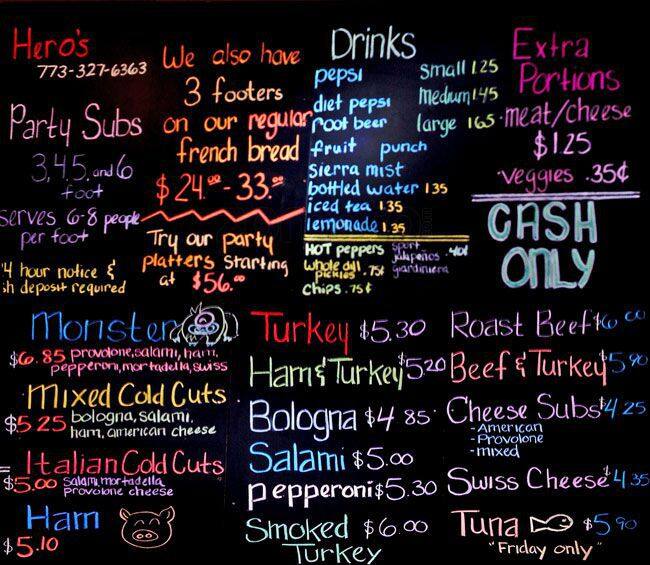 Hero's
773-327-6363
Party Subs
3, 4, 5, and 6
foot
serves 6-8 people
per foot
4 hour notice &
sh deposit required
We also have
3 footers
on our regular
french bread
$24.00 - 33.00
Try our party
platters starting
at $56.00
Drinks
pepsi
diet pepsi
root beer
fruit punch
sierra mist
bottled water 1.35
iced tea 1.35
lemonade 1.35
Small 1.25
Medium 1.45
large 1.65
HOT peppers
whole dill .75¢
pickles
chips .75¢
sport .40¢
jalapeños
giardiniera
Extra
Portions
meat/cheese
$1.25
veggies .35¢
CASH
ONLY
Monster
$6.85 provolone, salami, ham,
pepperoni, mortadella, swiss
Mixed Cold Cuts
$5.25 bologna, salami,
ham, american cheese
Italian Cold Cuts
$5.00 Salami, mortadella
provolone cheese
Ham
$5.10
Turkey $5.30
Ham & Turkey $5.20
Bologna $4.85
Salami $5.00
pepperoni $5.30
Smoked $6.00
Turkey
Roast Beef $6.00
Beef & Turkey $5.90
Cheese Subs $4.25
- American
- Provolone
- mixed
Swiss Cheese $4.35
Tuna $5.90
"Friday only"